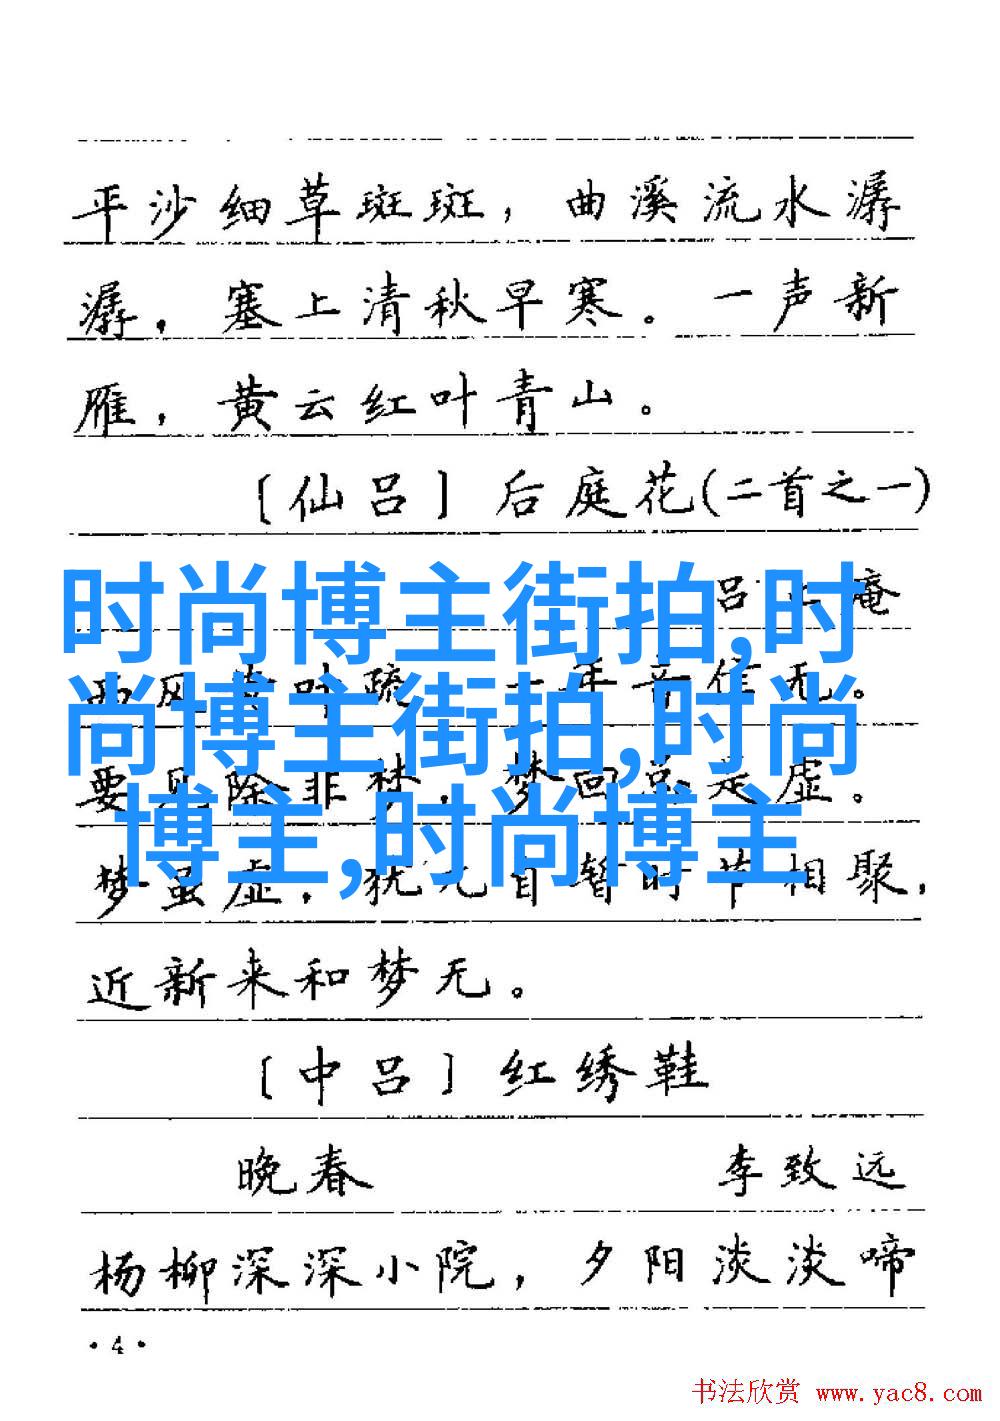 平沙细草斑斑，曲溪流水潺
潺，塞上清秋早寒。一声新
雁，黄云红叶青山。
〔仙吕〕后庭花(二首之一)
吕 庵
时尚博主街拍,时
风 叶疏 年音信无。
尚博主街拍,时尚
要见除非梦，梦回总是虚。
博主,时尚博主
梦虽虚，犹 自暂时节相聚，
近新来和梦无。
〔中吕〕红绣鞋
晚春 李致远
杨柳深深小院，夕阳淡淡啼
·4·
书法欣赏 www.yac8.com